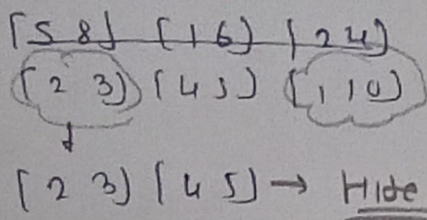 [5 8] [1 6] [2 4]
[2 3] [4 5] [1 10]
[2 3] [4 5] → Hide